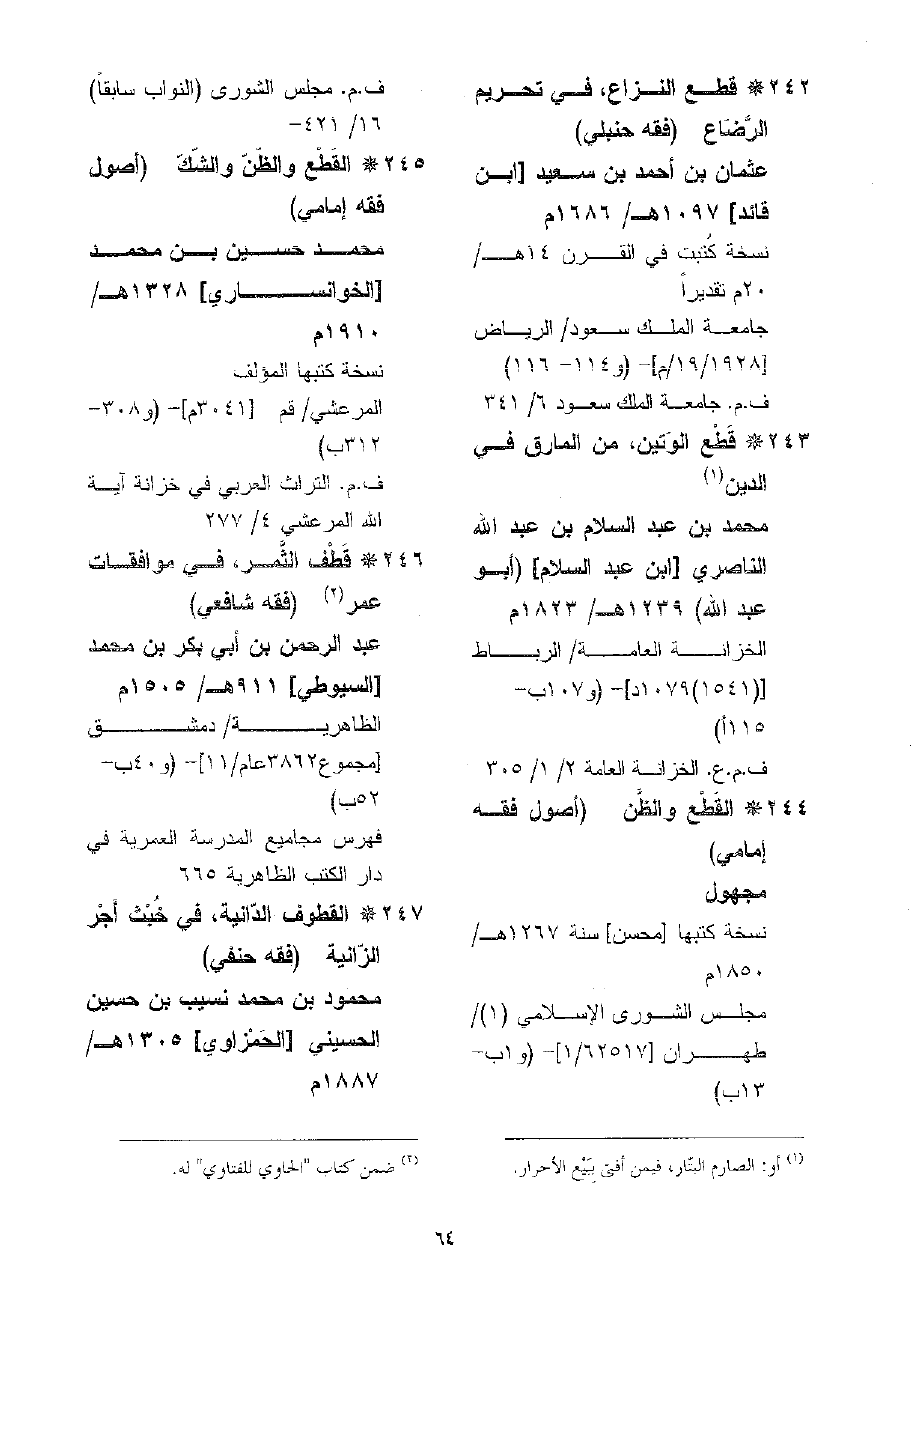 ٢٤٢* قطع النزاع، في تحريم
الرَّضَاع (فقه حنبلي)
عثمان بن أحمد بن سعيد [ابن
قائد] ١٠٩٧هـ/ ١٦٨٦م
نسخة كُتبت في القرن ١٤هـ/
٢٠م تقديراً
جامعة الملك سعود/ الرياض
[١٩/١٩٢٨/م]- (و١١٤- ١١٦)
ف.م. جامعة الملك سعود ٦/ ٣٤١
٢٤٣* قَطْع الوَتين، من المارق في
الدين(١)
محمد بن عبد السلام بن عبد الله
الناصري [ابن عبد السلام] (أبو
عبد الله) ١٢٣٩هـ/ ١٨٢٣م
الخزانة العامة/ الرباط
[(١٥٤١)١٠٧٩د]- (و١٠٧ب-
١١٥أ)
ف.م.ع. الخزانة العامة ٢/ ١/ ٣٠٥
٢٤٤* القَطْع والظَّن (أصول فقه
إمامي)
مجهول
نسخة كتبها [محسن] سنة ١٢٦٧هـ/
١٨٥٠م
مجلس الشورى الإسلامي (١)/
طهران [١/٦٢٥١٧]- (و١ب-
١٣ب)
(١) أو: الصارم البتّار، فيمن أفتى بِبَيْع الأحرار.
ف.م. مجلس الشورى (النواب سابقاً)
١٦/ ٤٢١-
٢٤٥* القَطْع والظّنّ والشّكّ (أصول
فقه إمامي)
محمد حسين بن محمد
[الخوانساري] ١٣٢٨هـ/
١٩١٠م
نسخة كتبها المؤلف
المرعشي/ قم [٣٠٤١م]- (و٣٠٨-
٣١٢ب)
ف.م. التراث العربي في خزانة آية
الله المرعشي ٤/ ٢٧٧
٢٤٦* قَطْف الثَّمر، في موافقات
عمر(٢) (فقه شافعي)
عبد الرحمن بن أبي بكر بن محمد
[السيوطي] ٩١١هـ/ ١٥٠٥م
الظاهرية/ دمشق
[مجموع٣٨٦٢عام/١١]- (و٤٠ب-
٥٢ب)
فهرس مجاميع المدرسة العمرية في
دار الكتب الظاهرية ٦٦٥
٢٤٧* القطوف الدّانية، في خُبْث أجْر
الزّانية (فقه حنفي)
محمود بن محمد نسيب بن حسين
الحسيني [الحَمْزاوي] ١٣٠٥هـ/
١٨٨٧م
(٢) ضمن كتاب "الحاوي للفتاوي" له.
٦٤